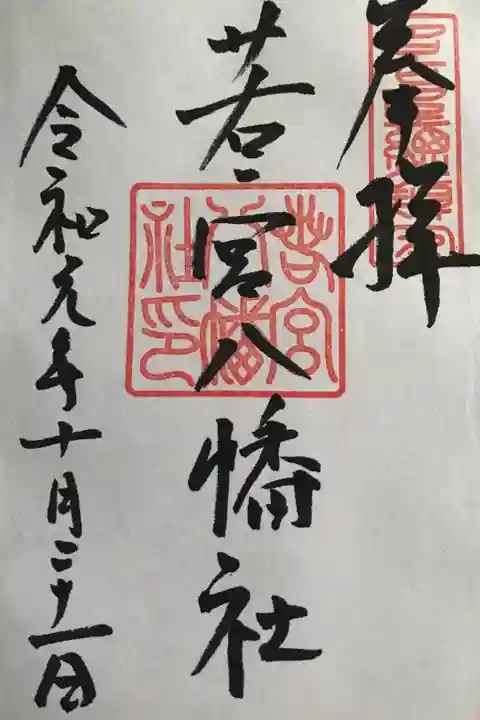 奉拝
若宮八幡社
令和元年十月二十一日
若宮
八幡
社印